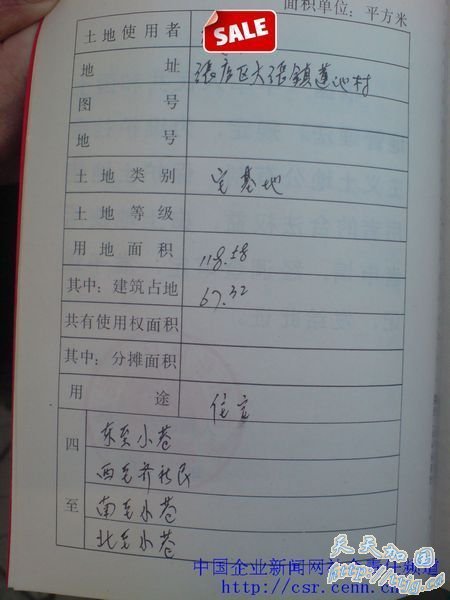 面积单位：平方米
土地使用者
SALE
地 址 张店区大张镇莲池村
图 号
地 号
土地类别 宅基地
土地等级
用地面积 118.58
其中：建筑占地 67.32
共有使用权面积
其中：分摊面积
用 途 住宅
四至
东至小巷
西至乔裕民
南至小巷
北至小巷
天天加国
中国企业新闻网社会责任频道
http://csr.cenn.cn/